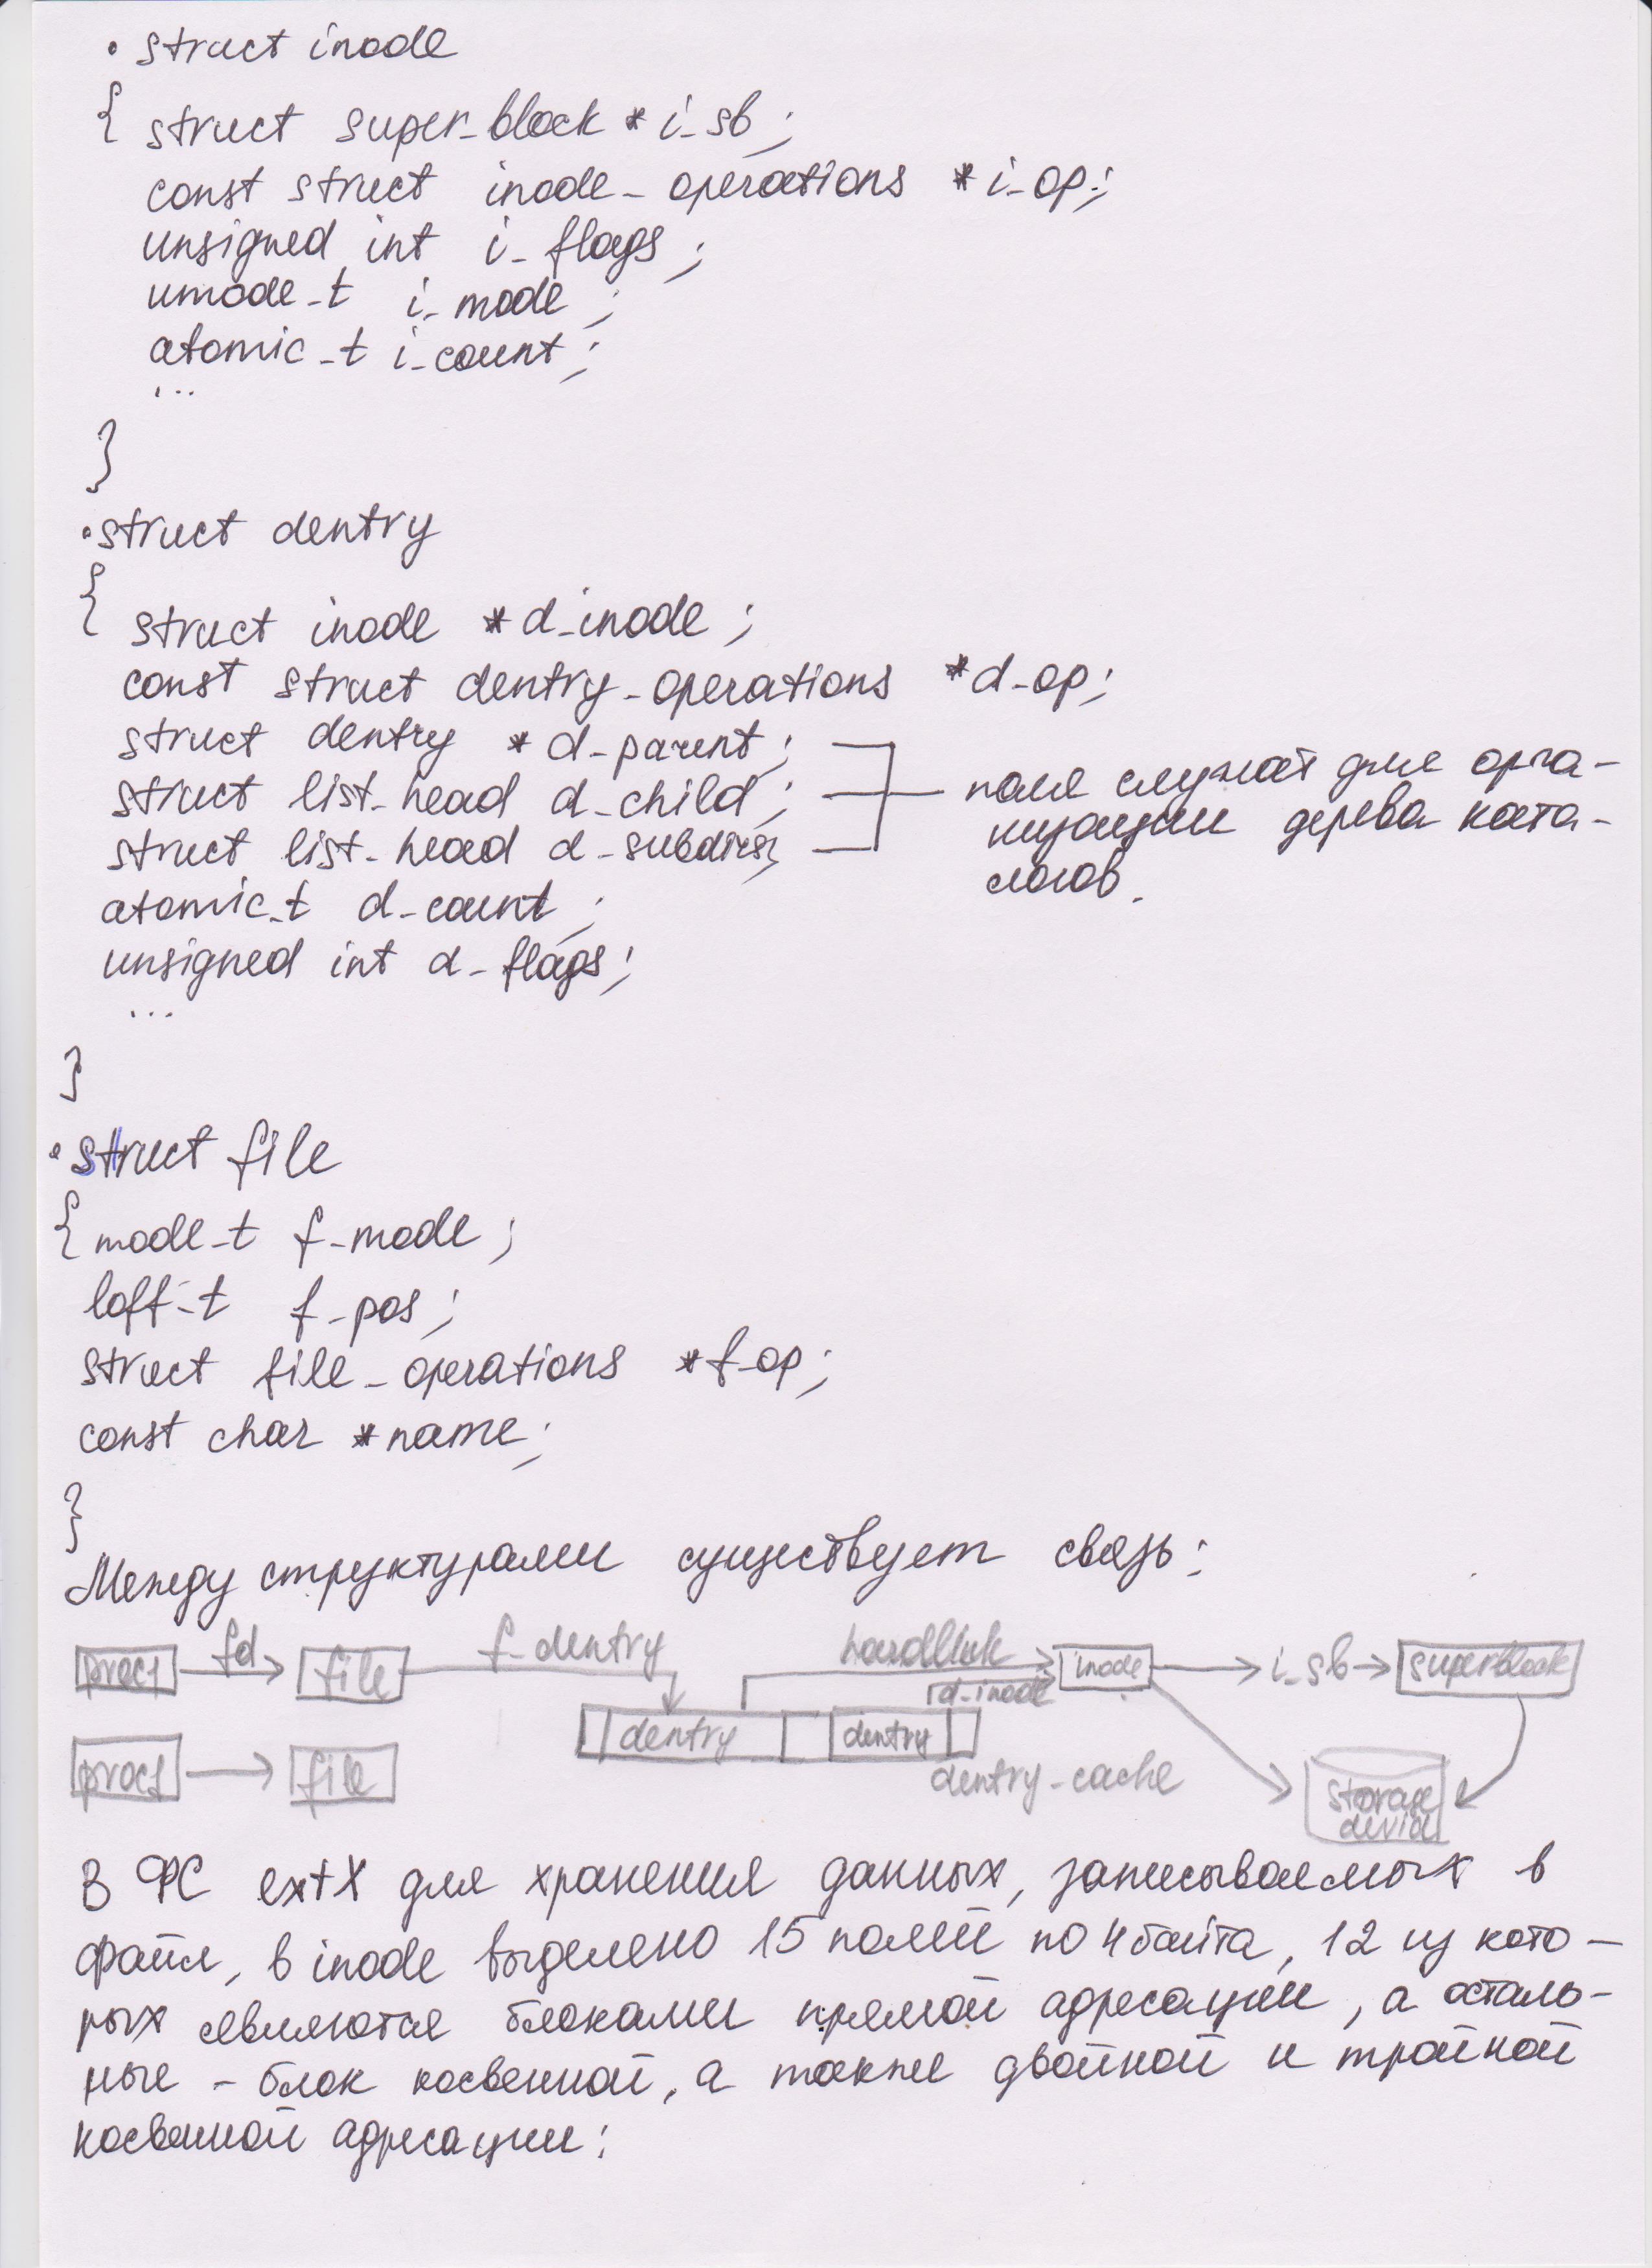 • struct inode
{ struct super_block * i_sb;
const struct inode_operations * i_op;
unsigned int i_flags;
umode_t i_mode;
atomic_t i_count;
...
}
• struct dentry
{ struct inode * d_inode;
const struct dentry_operations * d_op;
struct dentry * d_parent;
struct list_head d_child;
struct list_head d_subdirs;
поля служат для орга-
низации дерева ката-
логов.
atomic_t d_count;
unsigned int d_flags;
...
}
• struct file
{ mode_t f_mode;
loff_t f_pos;
struct file_operations * f_op;
const char * name;
}
Между структурами существует связь:
proc1 fd file f_dentry hardlink inode i_sb superblock
d_inode
dentry dentry
proc1 file dentry_cache
storage
device
В ФС extX для хранения данных, записываемых в
файл, в inode выделено 15 полей по 4 байта, 12 из кото-
рых являются блоками прямой адресации, а осталь-
ные - блок косвенной, а также двойной и тройной
косвенной адресации: